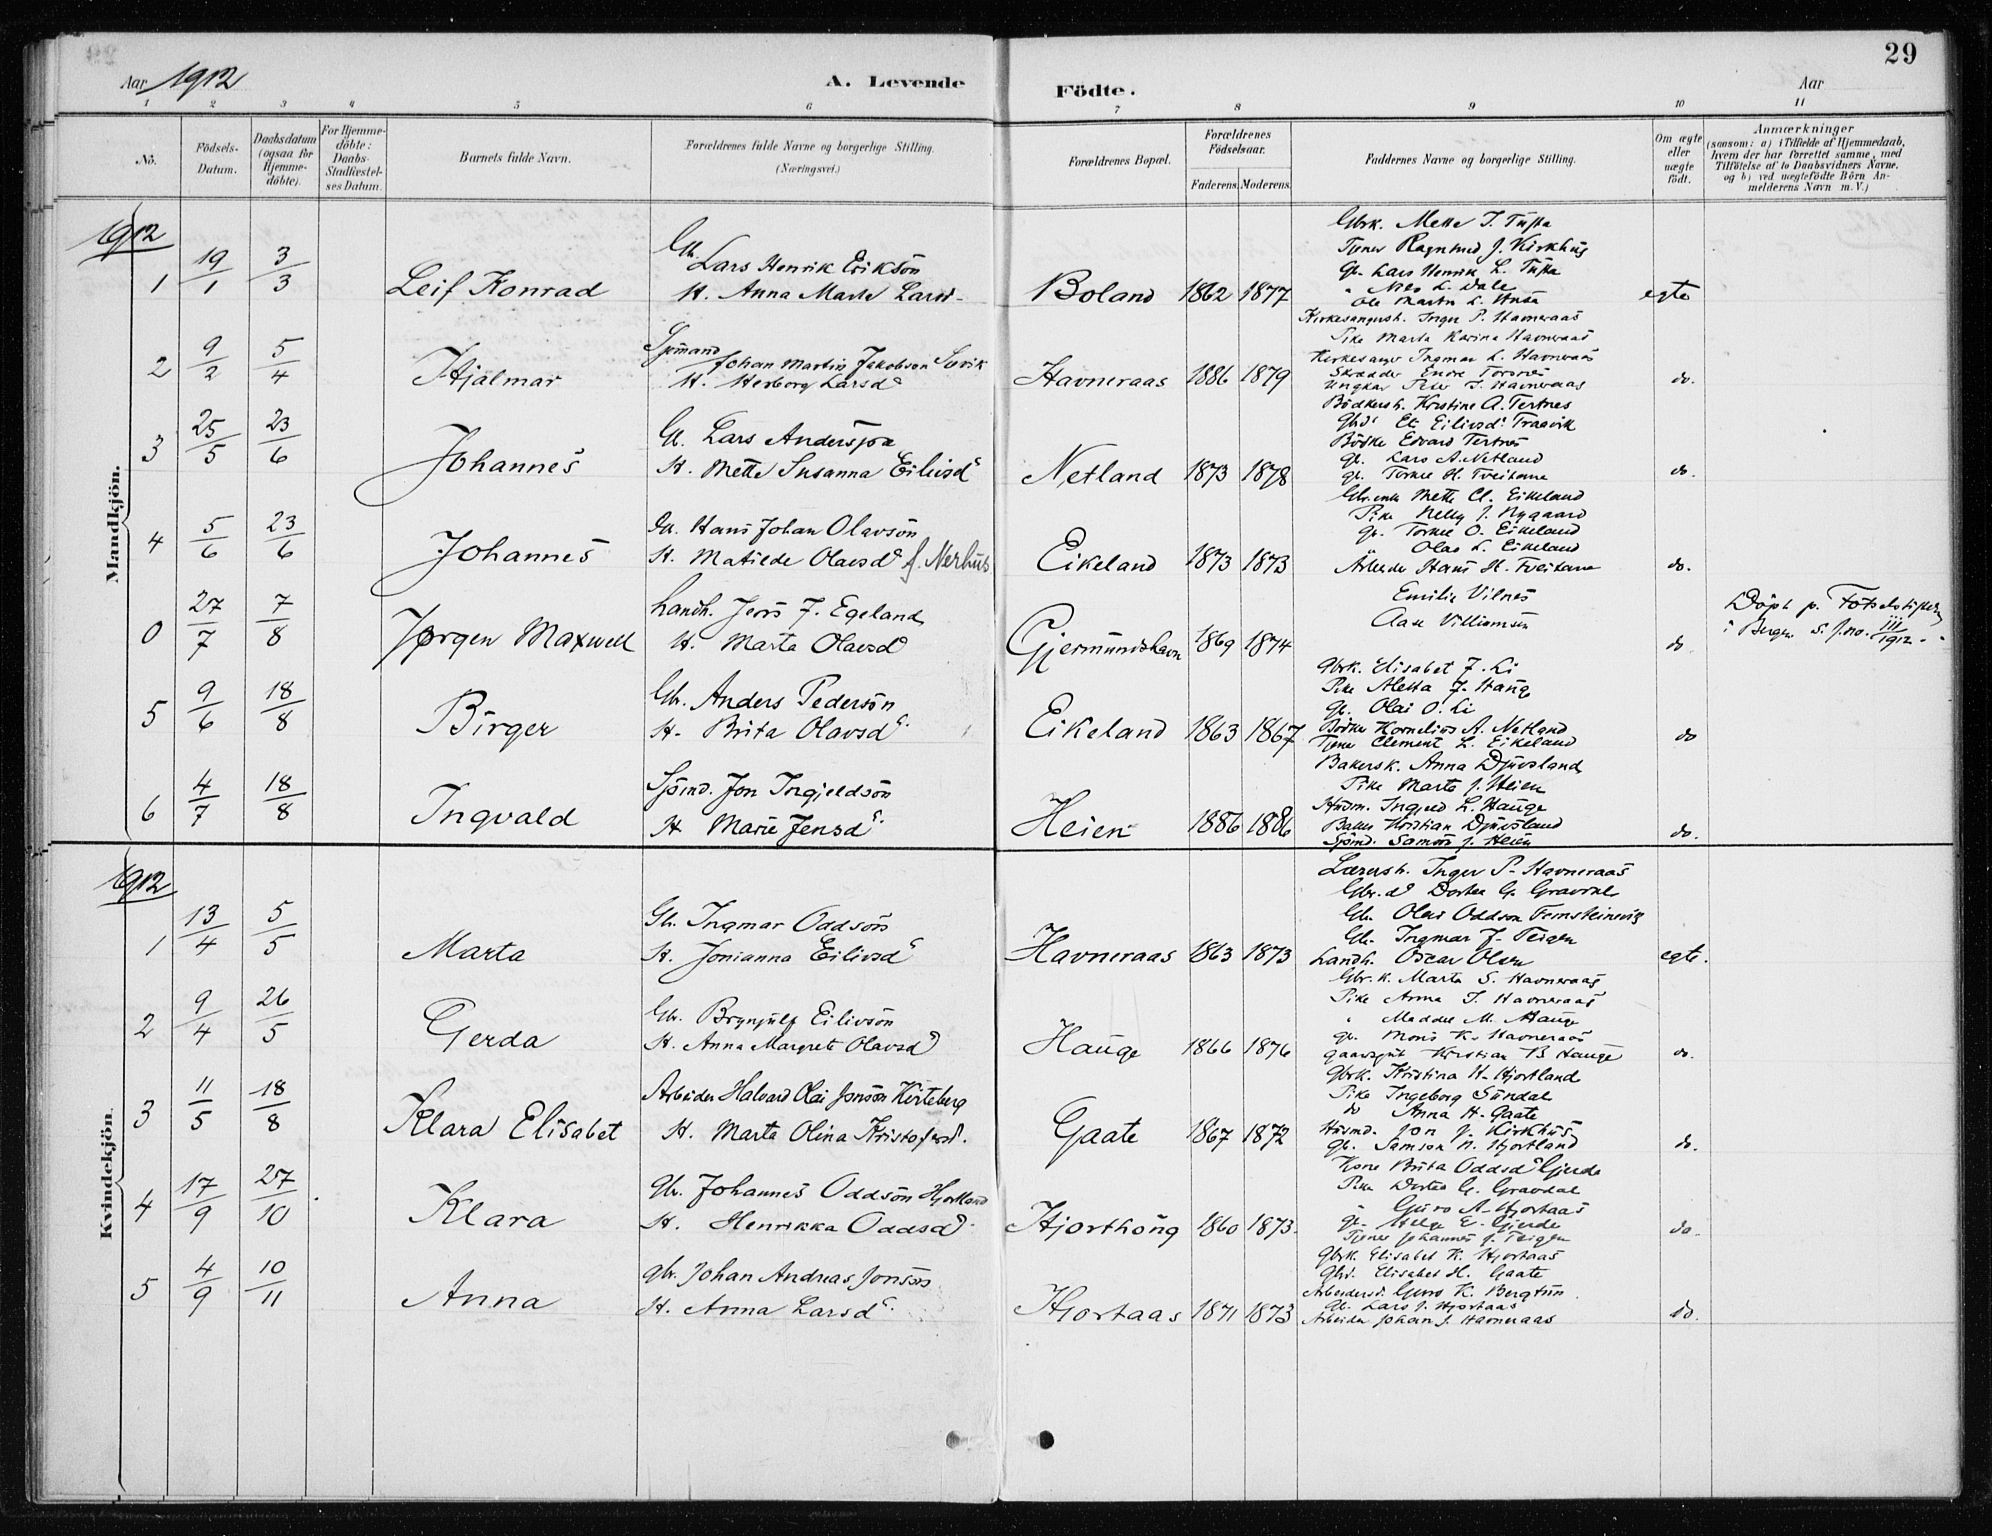 29
Aar 1912
A. Levende
Födte.
Aar
1 2 3 4 5 6 7 8 9 10 11
Nö.
Födsels-Datum.
Daabsdatum (ogsaa for Hjemme-döbte).
For Hjemme-döbte: Daabs-Stadfæstel-ses Datum.
Barnets fulde Navn.
Forældrenes fulde Navne og borgerlige Stilling. (Næringsvei.)
Forældrenes Bopæl.
Forældrenes Födselsaar.
Faderens. Moderens.
Faddernes Navne og borgerlige Stilling.
Om ægte eller uægte födt.
Anmærkninger
(saasom: a) i Tilfælde af Hjemmedaab, hvem der har forrettet samme, med Tilföielse af to Daabsvidners Navne, og b) ved uægtefödte Börn Anmelderens Navn m. V.)
Mandkjön.
1912
1 19/1 3/3 Leif Konrad
Gbr. Lars Henrik Erikson
H. Anna Marte Larsd.
Boland 1862 1877
Gbrk. Mette T. Tufta
Tjener Ragnhild J. Kirkhus
Gb. Lars Henrik L. Tufta
" Nils L. Dale
Ole Martin L. Husa
egte
2 9/2 5/4 Hjalmar
Sjømand Johan Martin Jakobson Sævik
H. Herborg Larsd
Havneraas 1886 1879
Kirkesangersh. Inger P. Havneraas
Pike Marta Karina Havneraas
Kirkesanger Ingmar L. Havneraas
Skrædder Endre Torsnes
Ungkar Peter I. Havneraas
do.
3 25/5 23/6 Johannes
Gb. Lars Anderson
H. Mette Susanna Eilivsd
Netland 1873 1878
Bödkersh. Kristine A. Tertnes
Gbd. Eli Eilivsd. Traavik
Bödke Edvard Tertnes
gb. Lars A. Netland
gb. Torkel H. Tveitane
do.
4 5/6 23/6 Johannes
Gb. Hans Johan Olavsön
H. Matilde Olavsd f. Nerhus
Eikeland 1873 1873
Gbr.enke Mette Cl. Eikeland
Pike Nelly J. Nygaard
gb. Torkel O. Eikeland
" Olav L. Eikeland
Arbeider Hans H. Tveitane
do.
0 27/7 7/8 Jørgen Maxwell
Landh. Jens J. Egeland
H. Marta Olavsd
Gjermundshavn 1869 1874
Emilie Vilnes
Aase Villiamsen
do
Döpt p. Fötselsstiftelsen
i Bergen s. J.no. 111/1912
5 9/6 18/8 Birger
Gbr. Anders Pedersön
H. Brita Olavsd
Eikeland 1863 1867
Gbrk. Elisabet J. Li
Pike Aletta J. Hauge
Gb. Olai O. Li
Bödker Kornelius A. Netland
Tjener Clement L. Eikeland
do
6 4/7 18/8 Ingvald
Sjömd. Jon Ingjeldsön
H. Marie Jensd.
Heien 1886 1886
Bakersk. Anna Djuvsland
Pike Marta J. Heien
Husm. Ingjeld L. Hauge
Baker Kristian Djuvsland
Sjömd. Samson J. Heien
do.
Kvindekjön.
1912
1 13/4 5/5 Marta
Gb. Ingmar Oddsön
H. Jonianna Eilivsd
Havneraas 1863 1873
Lærersh. Inger P. Havneraas
Gbr.d. Dortea G. Gravdal
Gb. Olai Oddson Femsteinevik
Gb. Ingmar J. Teigen
Landh. Oscar Olsen
egte.
2 9/4 26/5 Gerda
Gbr. Brynjulf Eilivsön
H. Anna Margrete Olavsd
Hauge 1866 1876
Gbr.k. Marta S. Havneraas
Pike Anna I. Havneraas
" Maddel M. Hauge
gb. Mons K. Havneraas
gaardsgut Kristian B. Hauge
do.
3 11/5 18/8 Klara Elisabet
Arbeider Halvard Olai Jonsön Kirteberg
H. Marta Olina Kristofersd.
Gaate 1867 1872
Gbrk. Kristina H. Hjortland
Pike Ingeborg Sundal
do Anna H. Gaate
Husmd. Jon J. Kirkhus
gb. Samson N. Hjortland
do.
4 17/9 27/10 Klara
Gbr. Johannes Oddsön Hjortland
H. Henrikka Oddsd
Hjorthöug 1860 1873.
Kone Brita Oddsd. Gjerde
Pike Dortea G. Gravdal
" Guro A. Hjortaas
gb. Helge E. Gjerde
Tjener Johannes J. Teigen
do.
5 4/9 10/11 Anna
gbr. Johan Andreas Jonsön
H. Anna Larsd.
Hjortaas 1871 1873
Gbrk. Elisabet K. Hjortaas
Gbd. Elisabet H. Gaate
Arbeidersd. Guro K. Bergtun
Gb. Lars J. Hjortaas
Arbeider Johan J. Havneraas
do.